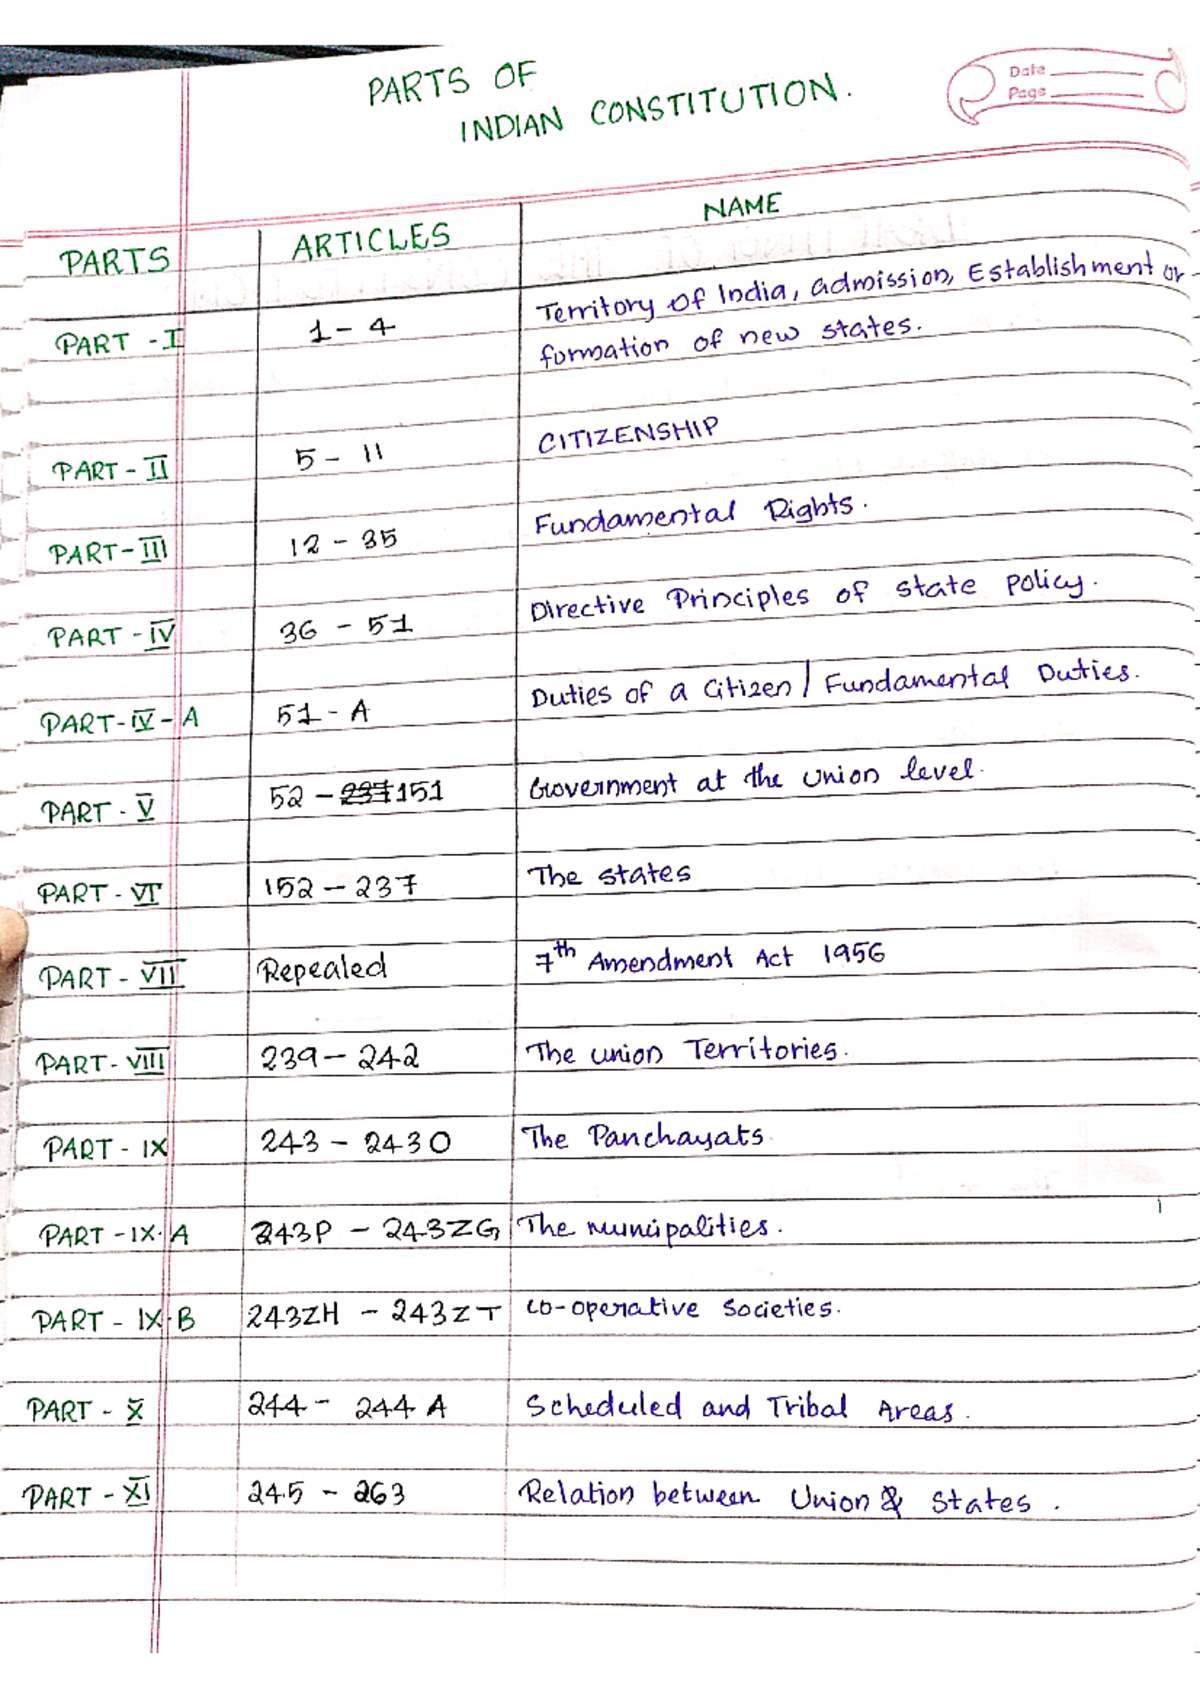 PARTS OF
INDIAN CONSTITUTION.
Date
Page
PARTS ARTICLES NAME
PART - I 1 - 4 Territory of India, admission, Establishment or
formation of new states.
PART - II 5 - 11 CITIZENSHIP
PART - III 12 - 35 Fundamental Rights.
PART - IV 36 - 51 Directive Principles of state policy.
PART - IV - A 51 - A Duties of a Citizen / Fundamental Duties.
PART - V 52 - 237 151 Government at the union level.
PART - VI 152 - 237 The states
PART - VII Repealed 7th Amendment Act 1956
PART - VIII 239 - 242 The union Territories.
PART - IX 243 - 243O The Panchayats.
PART - IX.A 243P - 243ZG The muncipalities.
PART - IX.B 243ZH - 243ZT co-operative Societies.
PART - X 244 - 244 A Scheduled and Tribal Areas.
PART - XI 245 - 263 Relation between Union & States.